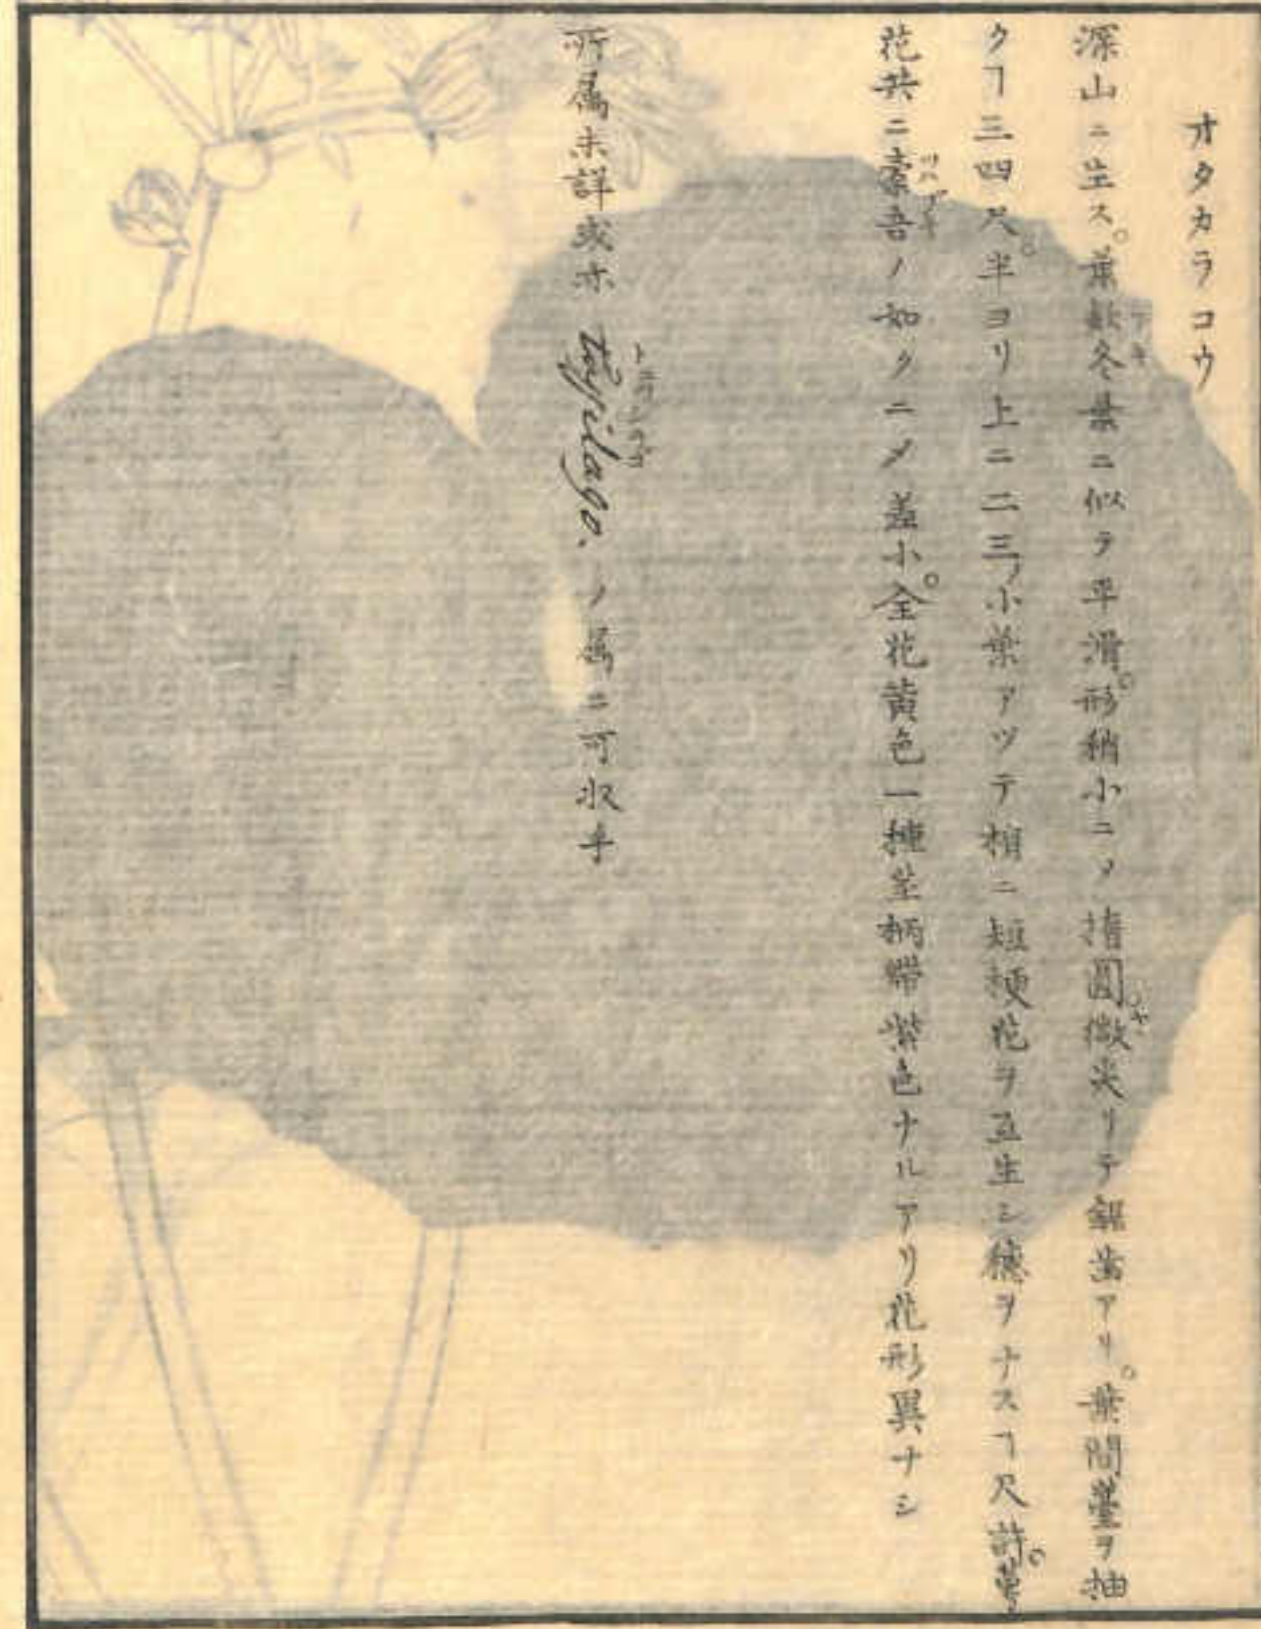 オタカラコウ
深山ニ生ス。葉款冬葉ニ似テ平滑。形稍小ニメ 揹圓微尖リテ鋸歯アリ。葉間薹ヲ抽
クヿ三四尺。半ヨリ上ニ二三ノ小葉アツテ梢ニ短梗花ヲ互生シ穂ヲナスヿ尺許。萼
花共ニ橐吾ノ如クニメ 蓋小。全花黄色一種茎柄帯紫色ナルアリ花形異ナシ
所属未詳或亦 tussilago. ノ属ニ可收乎